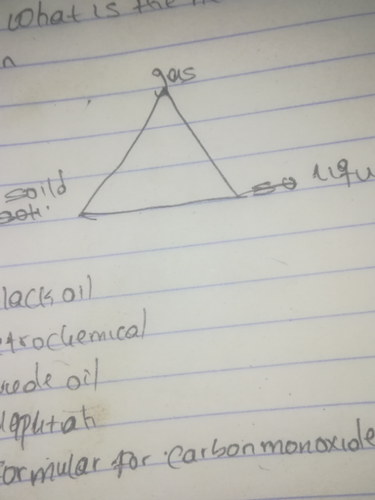 What is the
n
gas
soild
liqu
lack oil
etrochemical
rede oil
formular for carbonmonoxide